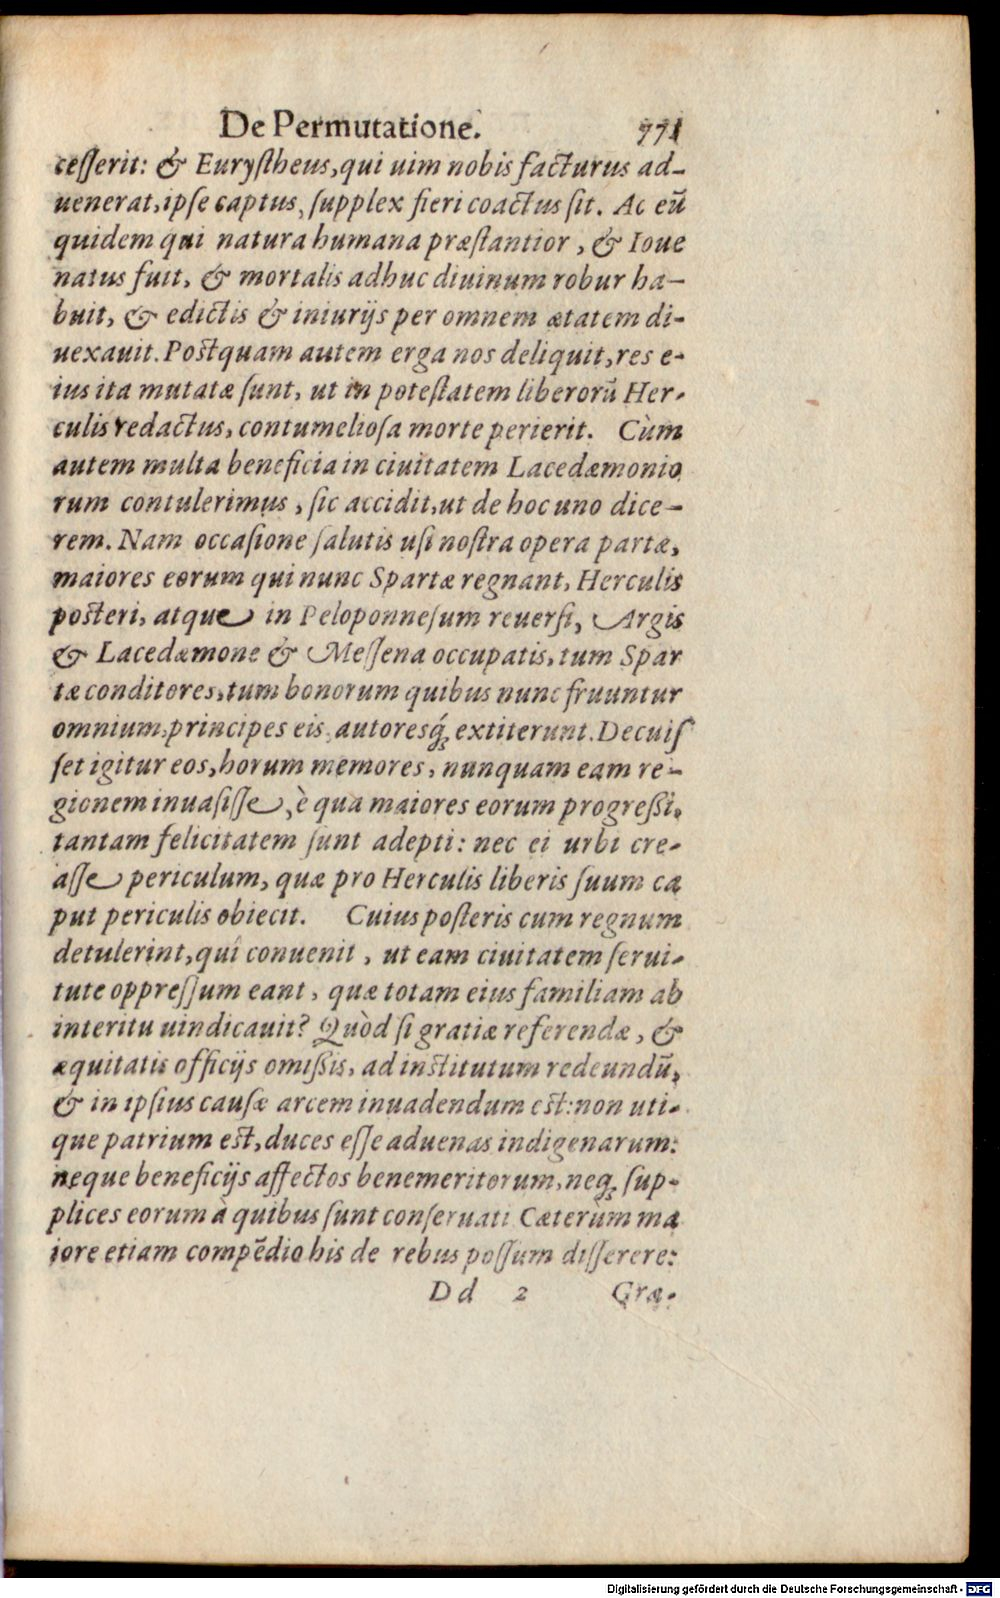 De Permutatione. 771
cesserit: & Eurystheus, qui uim nobis facturus ad-
uenerat, ipse captus, supplex fieri coactus sit. Ac eũ
quidem qui natura humana præstantior, & Ioue
natus fuit, & mortalis adhuc diuinum robur ha-
buit, & edictis & iniurijs per omnem ætatem di-
uexauit. Postquam autem erga nos deliquit, res e-
ius ita mutatæ sunt, ut in potestatem liberorũ Her-
culis redactus, contumeliosa morte perierit. Cùm
autem multa beneficia in ciuitatem Lacedæmonio
rum contulerimus, sic accidit, ut de hoc uno dice-
rem. Nam occasione salutis usi nostra opera partæ,
maiores eorum qui nunc Spartæ regnant, Herculis
posteri, atque in Peloponnesum reuersi, Argis
& Lacedæmone & Messena occupatis, tum Spar
tæ conditores, tum bonorum quibus nunc fruuntur
omnium, principes eis, autoresq́; extiterunt. Decuis
set igitur eos, horum memores, nunquam eam re-
gionem inuasisse, è qua maiores eorum progressi,
tantam felicitatem sunt adepti: nec ei urbi cre-
asse periculum, quæ pro Herculis liberis suum ca
put periculis obiecit. Cuius posteris cum regnum
detulerint, quî conuenit, ut eam ciuitatem serui-
tute oppressum eant, quæ totam eius familiam ab
interitu uindicauit? Quòd si gratiæ referendæ, &
æquitatis officijs omissis, ad institutum redeundũ,
& in ipsius causæ arcem inuadendum est: non uti-
que patrium est, duces esse aduenas indigenarum:
neque beneficijs affectos benemeritorum, neq; sup-
plices eorum à quibus sunt conseruati Cæterùm ma
iore etiam compẽdio his de rebus possum disserere:
Dd 2 Græ-
Digitalisierung gefördert durch die Deutsche Forschungsgemeinschaft - DFG